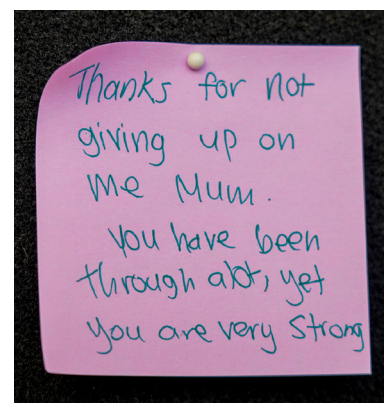 Thanks for not
giving up on
me Mum.
You have been
through alot, yet
you are very strong